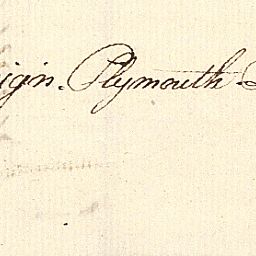 ign. Plymouth.